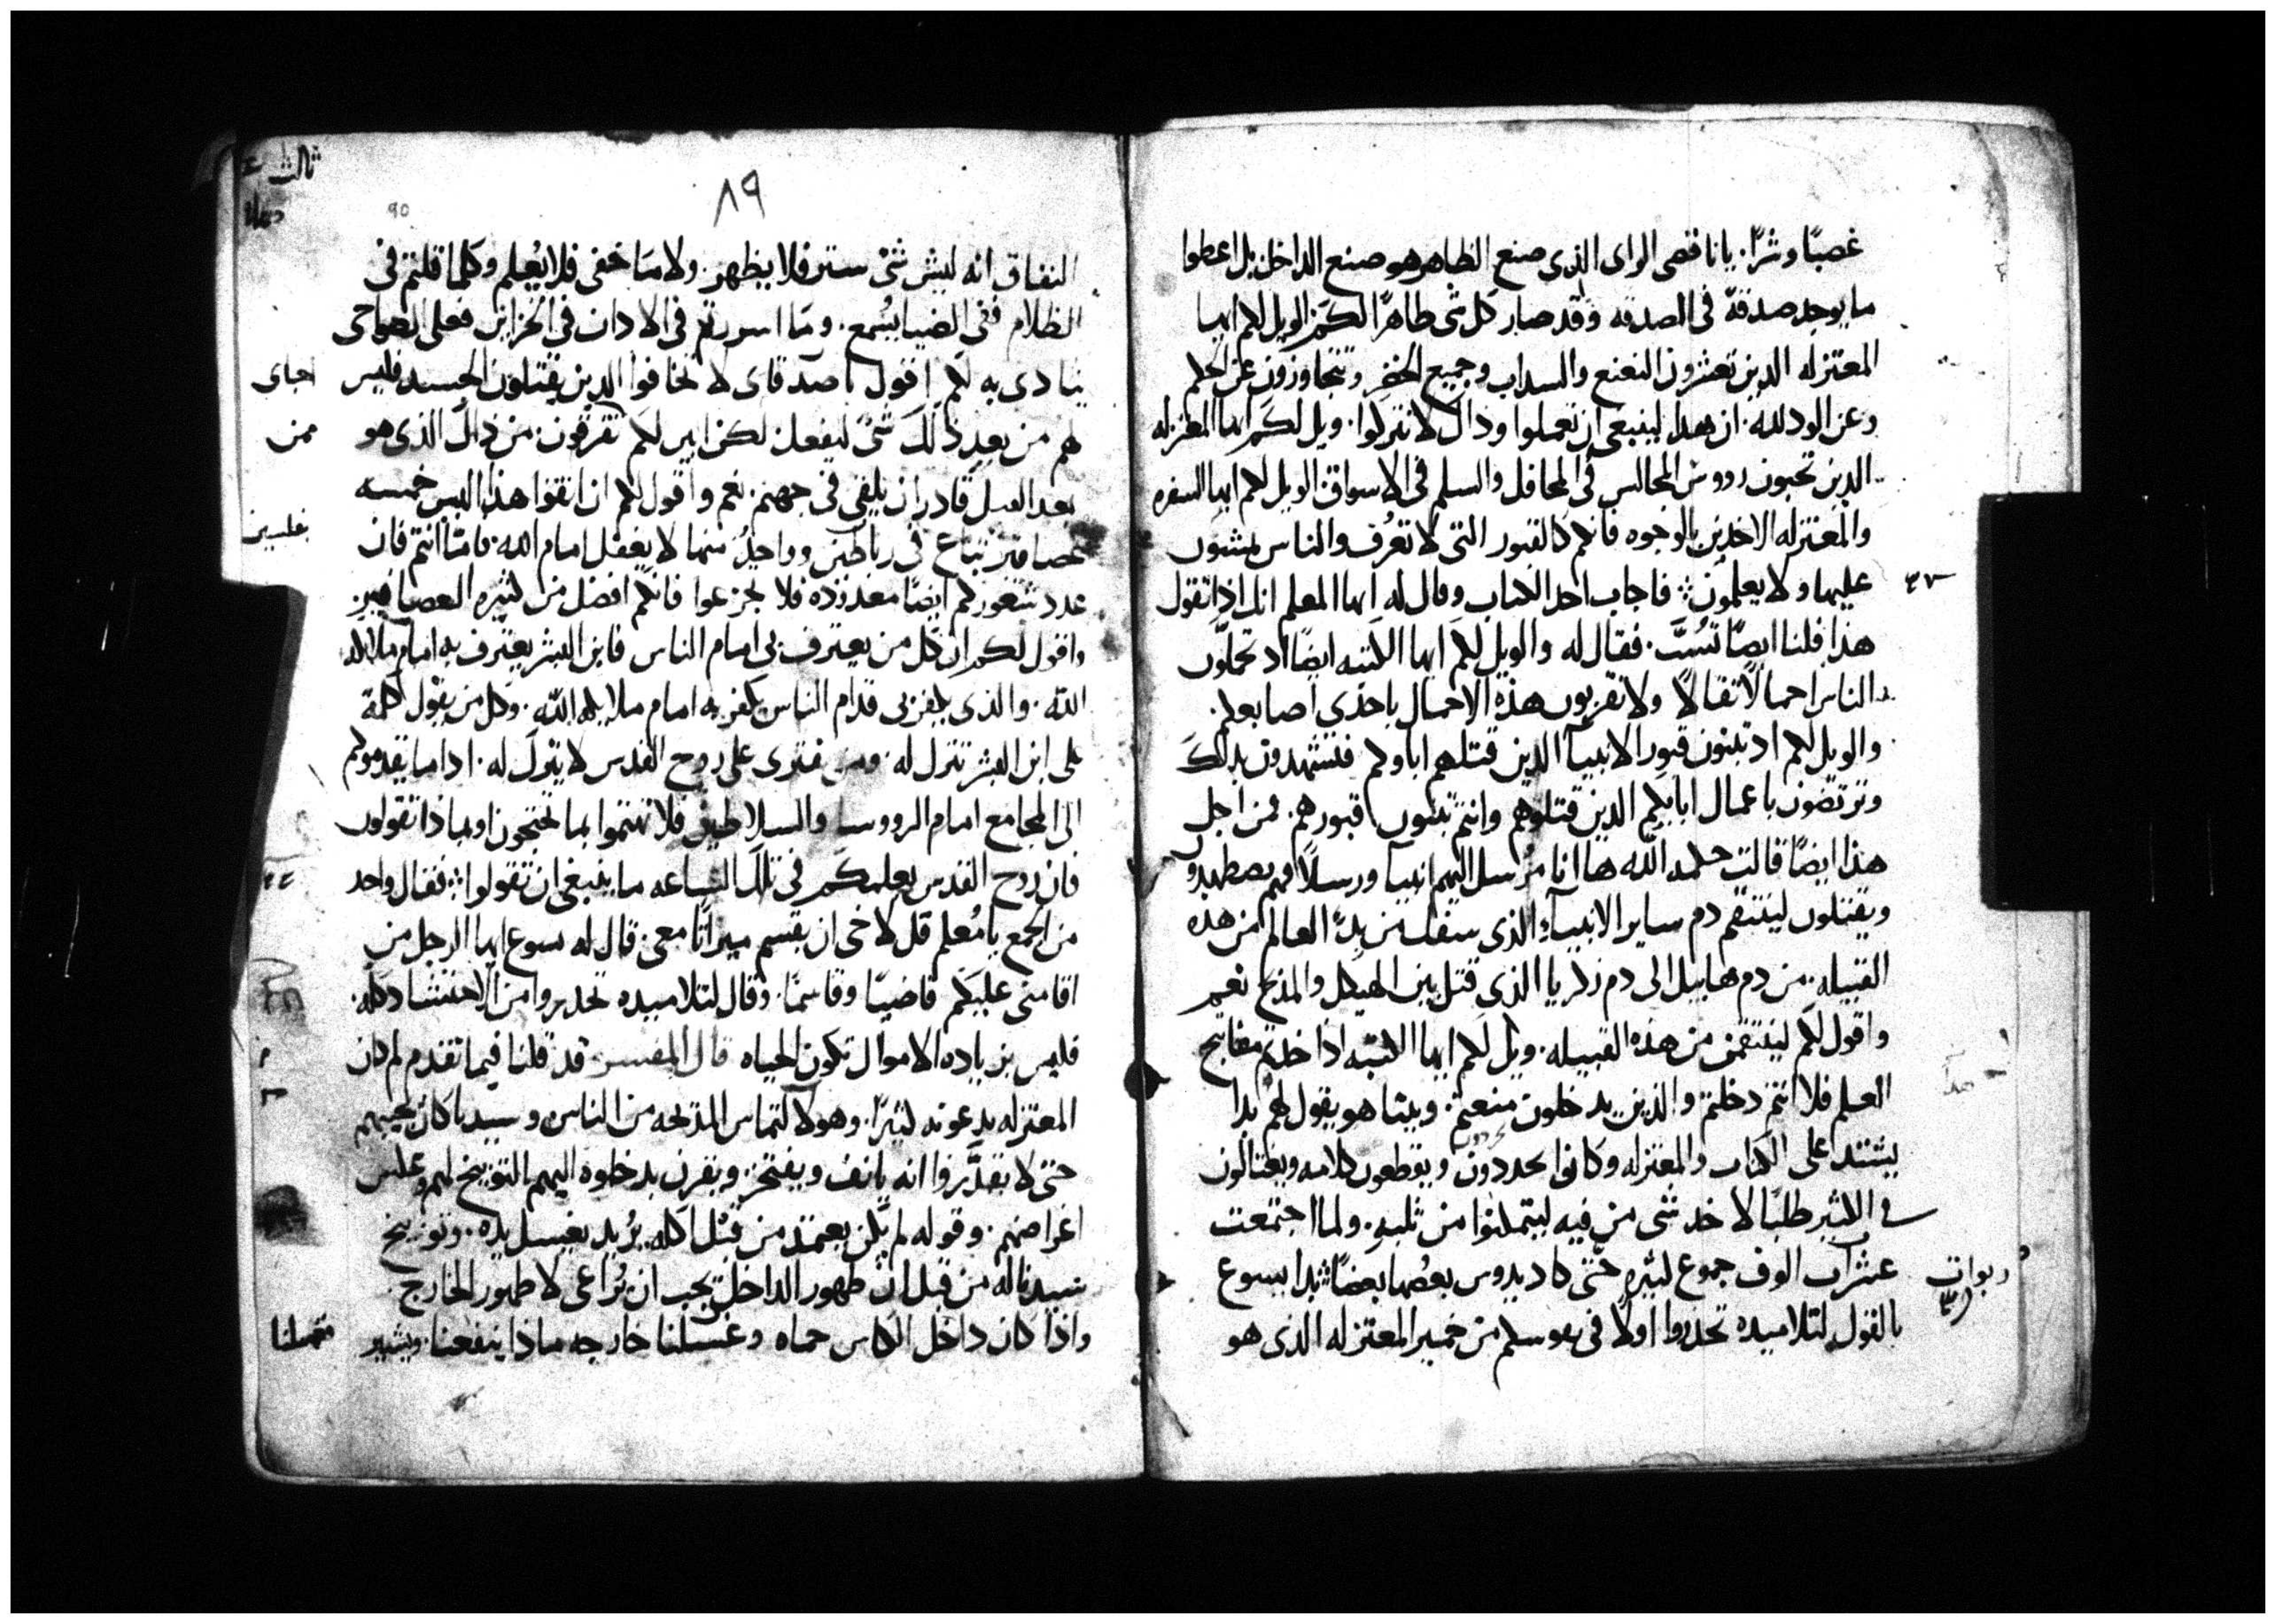 غصبًا وشرًا. يا ناقصى الراى الذى صنع الظاهر هو صنع الداخل بل اعطوا
ما يوجد صدقة فى الصدقه وقد صار كل شى طاهرًا لكم الويل لكم ايها
المعتزله الذين تعشرون النعنع والسداب وجميع الخضر وتتجاوزون عن الحكم
وعن الود لله. ان هذا لينبغى ان تعملوا وذاك لا تتركوا. ويل لكم ايها المعتزله
الذين تحبون رووس المجالس فى المحافل والسلم فى الاسواق الويل لكم ايها السفره
والمعتزله الاخدين بالوجوه فانكم كالقبور التى لا تعرف والناس يمشون
عليها ولا يعلمون فاجاب احد الكتاب وقال له ايها المعلم انك اذا تقول
٣٧
هذا فلنا ايضًا تسُبّ. فقال له والويل لكم ايها الكتبه ايضًا اذ تحملون
الناس احمالًا ثقالًا ولا تقربون هذة الاحمال باحدى اصابعكم.
والويل لكم اد تبنون قبور الانبيآ الدين قتلهم اباوكم فتشهدون بدلك
وترتضون باعمال ابايكم الدين قتلوهم وانتم تبنون قبورهم فمن اجل
هذا ايضًا قالت حكمه الله هاانا مرُسل اليهم انبيا ورسلًا فمنهم يضطهدو
ويقتلون لينتقم دم ساير الانبيآء الذى سفك من بدء العالم من هده
القبيله. من دم هابيل الى دم زكريا الذى قتل بين الهيكل والمذبح نعم
واقول لكم لينتقمن من هذه القبيله. ويل لكم ايها الكتبه اذ اخدتم مفاتيح
العلم فلا انتم دخلتم والذين يدخلون منعتم. وبينا هو يقول لهم بدا
يشتد على الكتاب والمعتزله وكانوا يحددون ويقطعون كلامه ويغتالون
فى الكثير طلبًا لاخد شى من فيه ليتمكنوا من ثلبه. ولما اجتمعت
عشرات الوف جموع كثيره حتى كاد يدوس بعضها بعضًا بدا يسوع
ربوات
٣٨
بالقول لتلاميده تحذروا اولًا فى نفوسكم من خمير المعتزله الذى هو
ثالث
٨٩
90
النفاق انه ليس شى ستر فلا يظهر. ولا مَا خفى فلا يُعلم وكلما قلتم فى
الظلام ففى الضيا يسُمع. ومَا اسررتم فى الادان فى الخزاين فعلى الضواحى
ينادى به لكم اقول يا صدقاى لا تخافوا الدين يقتلون الجسد فليس
احباى
لهم من بعد ذلك شى ليفعل لكن ابين لكم تفرقون من ذاك الذى هو
ممن
بعد القتل قادر ان يلقى فى جهنم. نعم واقول لكم ان اتقوا هذا اليس خمسه
عصافير تباع فى رباطين وواحدٌ منها لا يغفل امام الله. فامّا انتم فان
بفلسين
عدد شعوركم ايضًا معدوده فلا تجزعوا فانكم افضل من كثيره العصافير
واقول لكم ان كل من يعترف بى امام الناس فابن البشر يعترف به امام ملايكه
الله. والذى يكفر بى قدام الناس يكفر به امام ملايكه الله. وكل من يقول كلمة
على ابن البشر تترك له. ومن فترى على روح القدس لا يترك له. اداما يقدموكم
الى المجامع امام الرووسا والسلاطين فلا تهتموا بما تحتجون او بماذا تقولون
فان روح القدس يعلمكم فى تلك الساعه ما ينبغى ان تقولوا فقال واحد
من الجمع يا مُعلم قل لاخى ان يقسم ميراثًا معى. قال له يسوع ايها الرجل من
اقامنى عليكم قاضيًا وقاسمًا. وقال لتلاميده تحدروا من الاحتشاد كله.
فليس بزياده الاموال تكون الحياه قال المفسر قد قلنا فيما تقدم لم كان
المعتزله يدعونه كثيرًا. وهو لالتماس المدحه من الناس وسيدنا كان يجيبهم
حتى لا يقدّروا انه يانف ويفتخر. ويقرن بدخلوه اليهم التوبيخ لهم وعكس
اغراضهم. وقوله لم يكن يعتمد من قبْل اكله يرُيد يغسل يده. وتوبيخ
سيدنا له من قبل ان طهور الداخل يجب ان يُراعى لا طهور الخارج.
واذا كان داخل الكاس حماه وغسلنا خارجه ماذا ينفعنا. ويشير
فتمسكنا